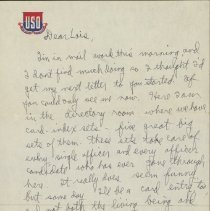 USO
Dear Lois,
I'm on mail work this morning and
I don't find much doing so I thought I'd
get my next letter to you started. If
you could only see me now. Here I am
in the directory room where we have
card index sets - five great big
sets of them. These sets take care of
every single officer and every officer
candidate who has ever gone through
here. It really does seem funny
but some day I'll be a card entry to
not both the living being and